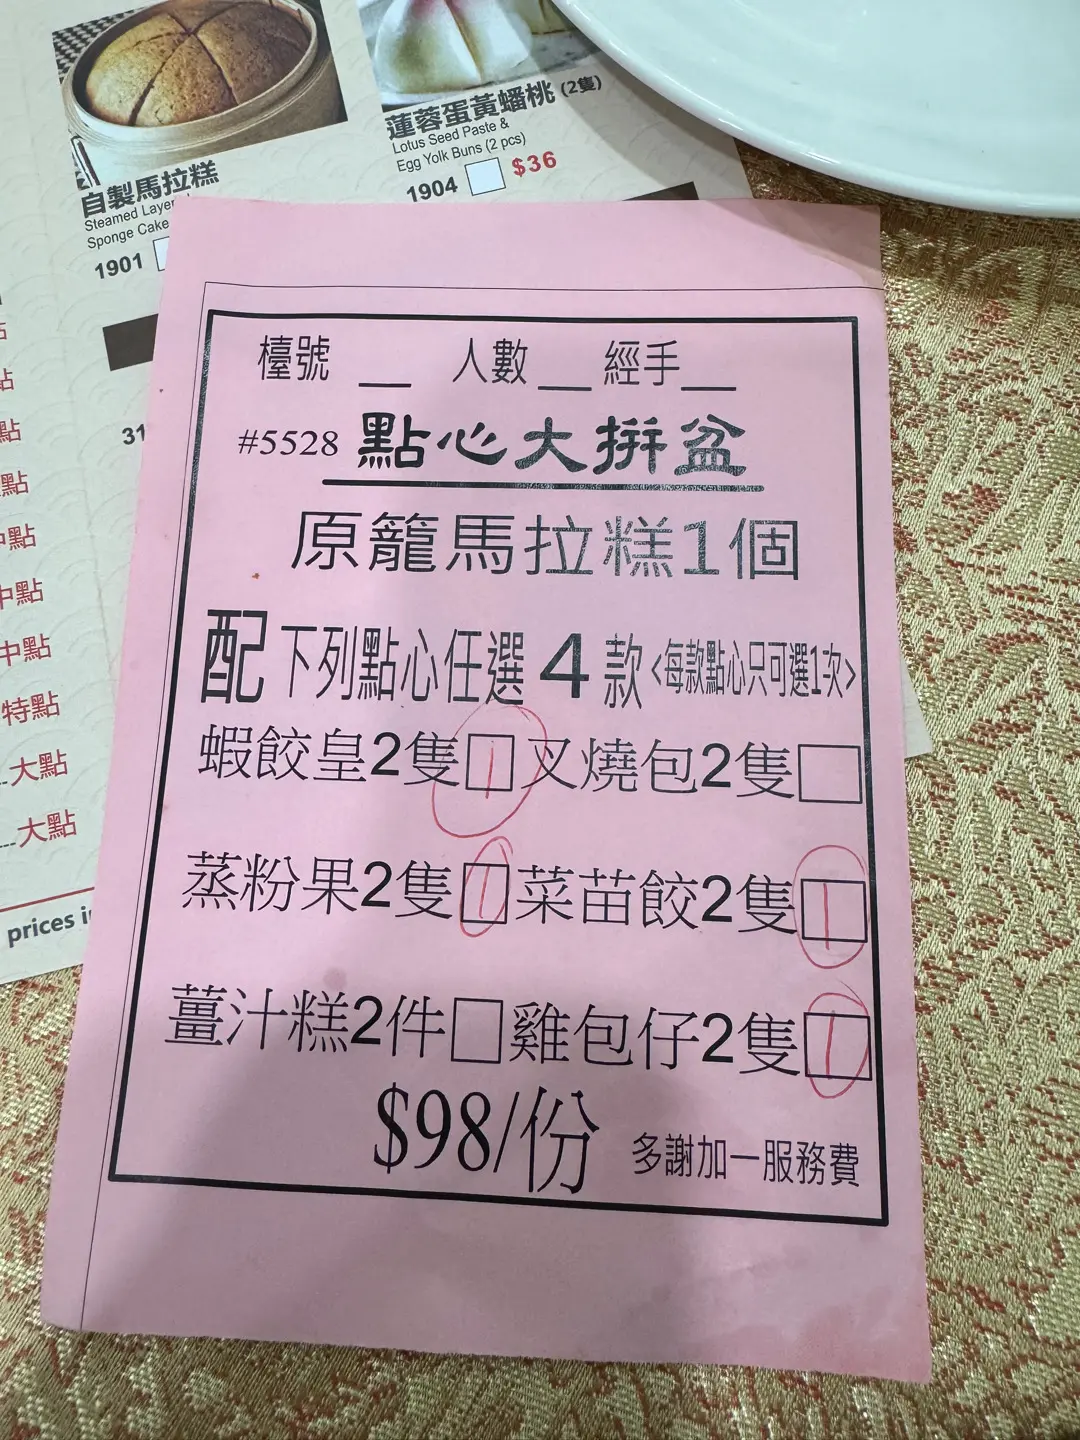 自製馬拉糕
Steamed Layer
Sponge Cake
1901
蓮蓉蛋黃蟠桃 (2隻)
Lotus Seed Paste &
Egg Yolk Buns (2 pcs)
1904 $36
31
點
點
點
點
中點
中點
中點
特點
大點
大點
prices
檯號 __ 人數 __ 經手 __
#5528 點心大拼盆
原籠馬拉糕1個
配下列點心任選4款<每款點心只可選1次>
蝦餃皇2隻□ 1 叉燒包2隻□
蒸粉果2隻□ 1 菜苗餃2隻□ 1
薑汁糕2件□ 雞包仔2隻□ 1
$98/份 多謝加一服務費